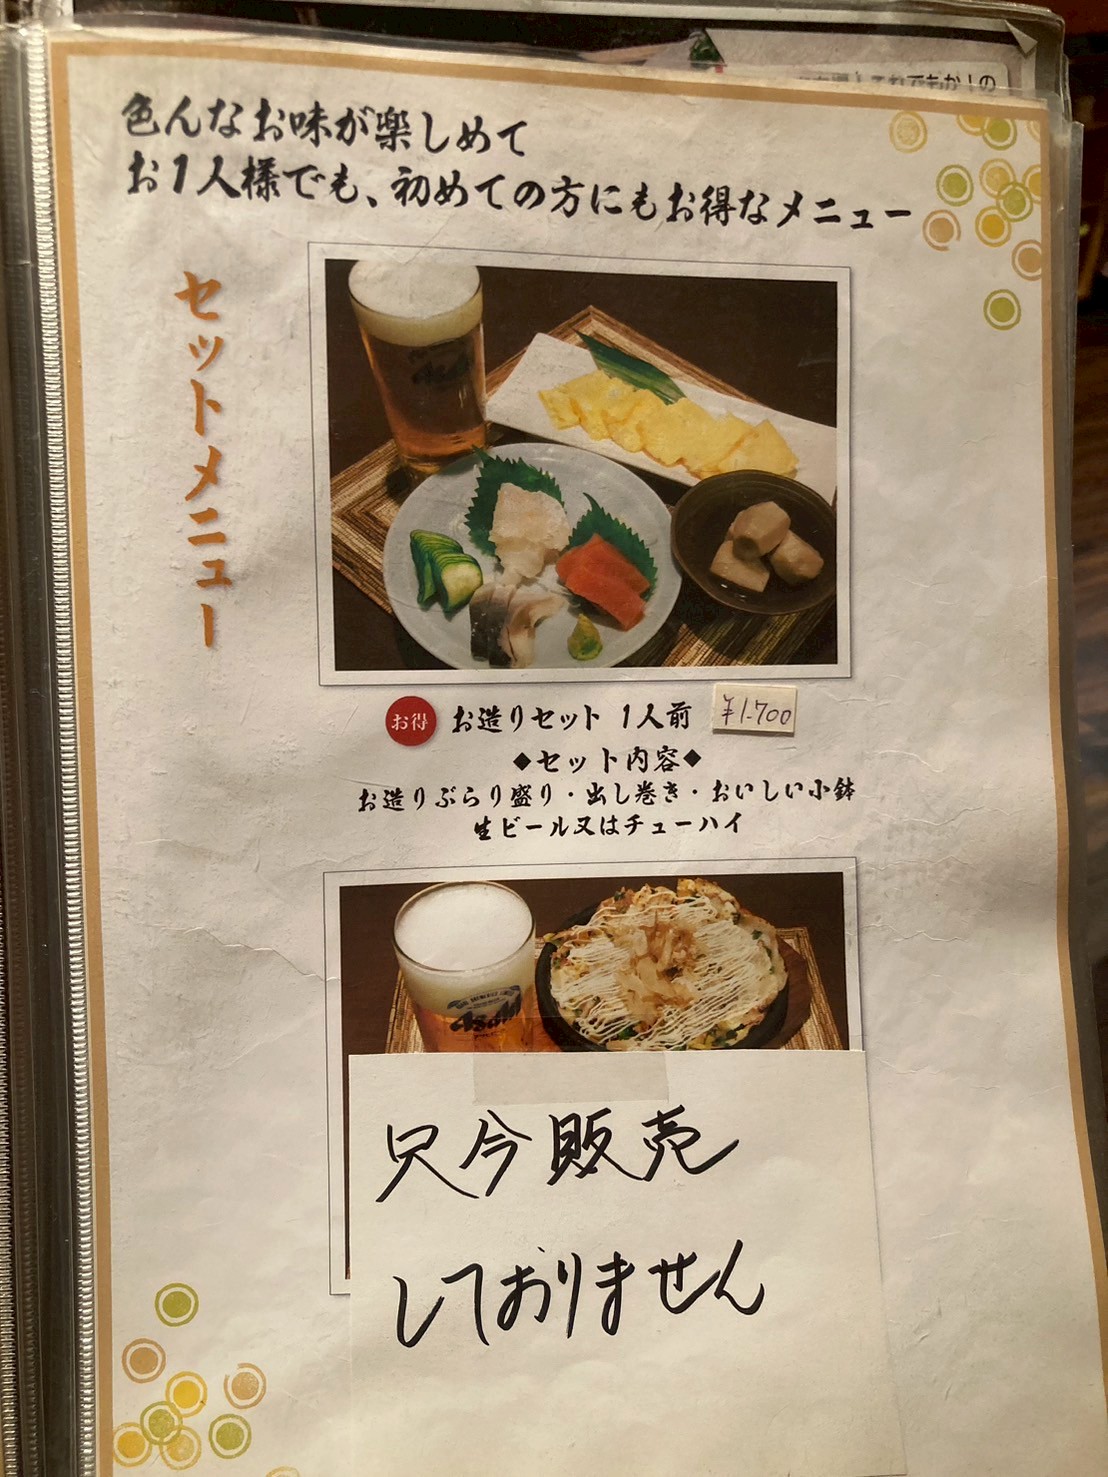 色んなお味が楽しめて
お1人様でも、初めての方にもお得なメニュー
セットメニュー
お得 お造りセット 1人前 ¥1.700
◆セット内容◆
お造りぶらり盛り・出し巻き・おいしい小鉢
生ビール又はチューハイ
Asahi
只今販売
しておりません